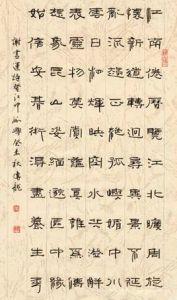 江南倦歷覽江北曠周旋
懷新道轉迥尋異景不延
亂流趨正絕孤嶼媚中川
雲日相輝映空水共澄鮮
表靈物莫賞蘊真誰為傳
想象崑山姿緬邈區中緣
始信安期術得盡養生年
謝靈運詩登江中孤嶼癸未秋